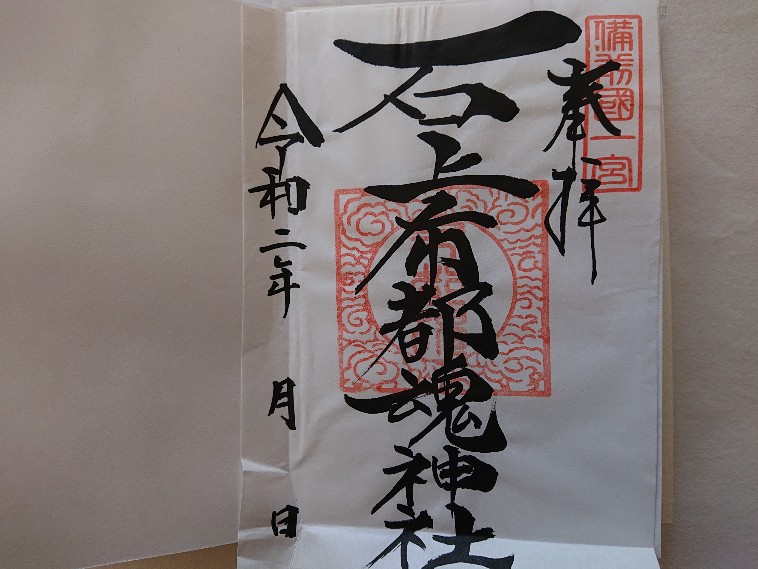 備前國一宮
奉拝
石上布都魂神社
令和二年 月 日